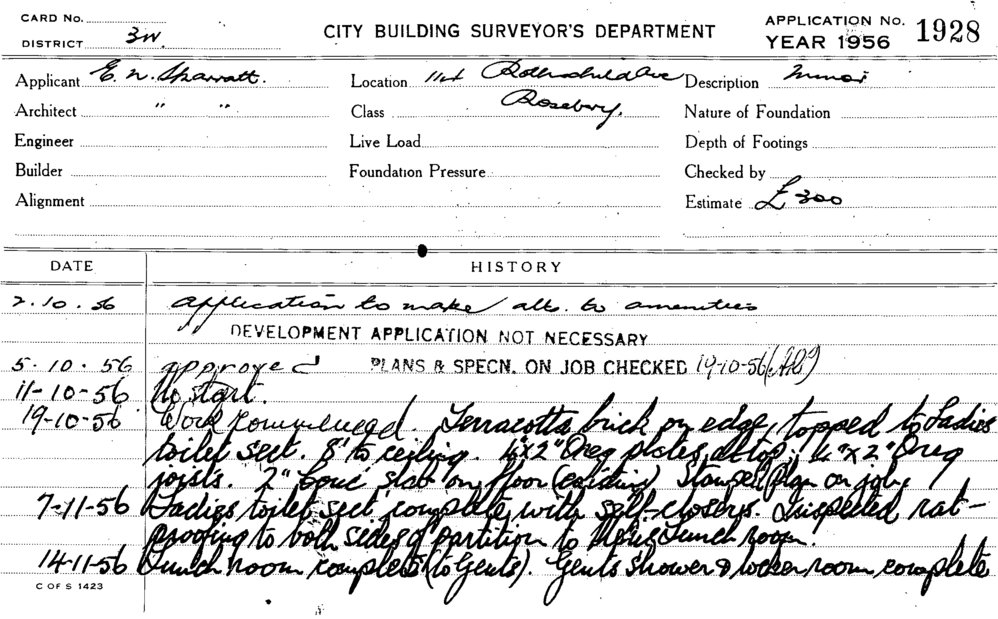 CARD No.
DISTRICT 3W
CITY BUILDING SURVEYOR'S DEPARTMENT
APPLICATION No. 1928
YEAR 1956
Applicant E. N. Sharratt. Location Rothschild Ave Description Minor
Architect " " Class Rosebery. Nature of Foundation
Engineer Live Load Depth of Footings
Builder Foundation Pressure Checked by
Alignment Estimate £300
DATE HISTORY
2.10.56 application to make alts. to amenities
DEVELOPMENT APPLICATION NOT NECESSARY
5.10.56 approved PLANS & SPECN. ON JOB CHECKED 19-10-56
11-10-56 No start.
19-10-56 Work commenced. Terracotta brick on edge, topped to Ladies
toilet sect. 8' to ceiling. 4"x2" Oreg plates at top, 4"x2" Oreg
joists. 2" Conc slab on floor (existing) Stamped Plan on job.
7-11-56 Ladies toilet sect complete with self-closers. Inspected rat-
proofing to both sides of partition to Lunch room.
14-11-56 Lunch room complete (to Gents). Gents Shower & locker room complete
C OF S 1423